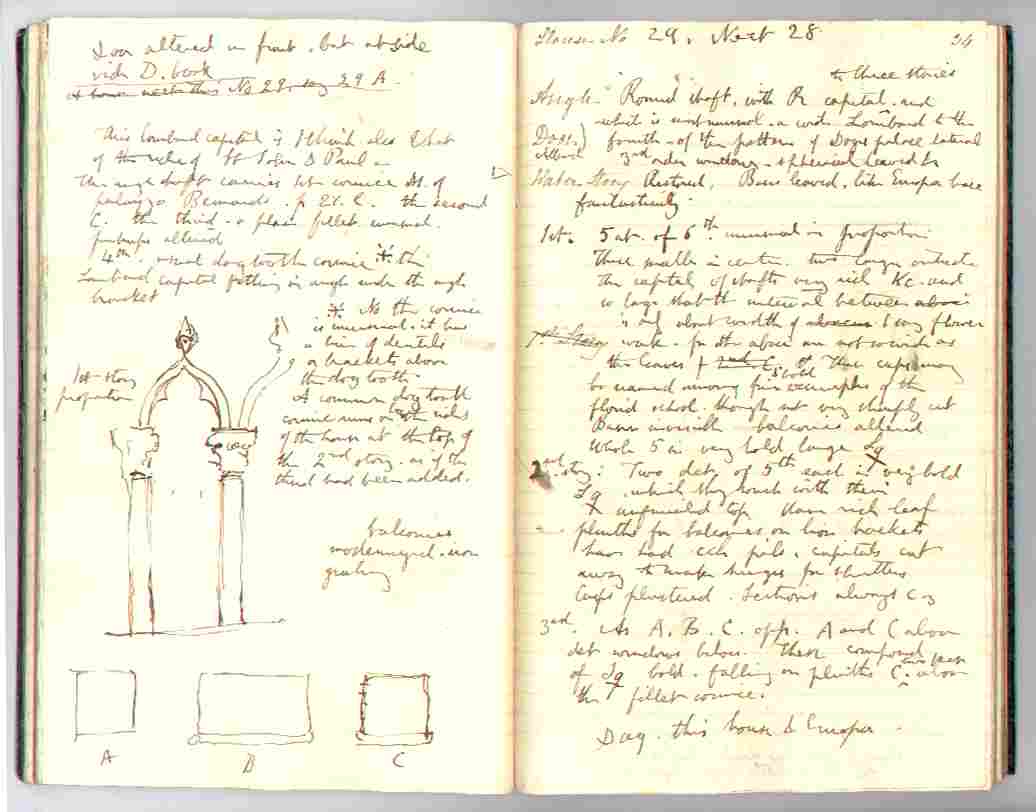 Door altered in front. but at side
vide D. book
A house next this No 29. say 29 A.
This Lombard capital is I think also that
of the side of St John & Paul
The angle shaft carries 1st cornice of
palazzo Bernardo. p 21. C. the second
C. the third. a plain fillet unusual.
perhaps altered
4th. usual dogtooth cornice * this
Lombard capital fitting in angle under the angle
bracket
* No the cornice
is unusual. it has
a line of dentils
or brackets above
the dogtooth.
A common dogtooth
cornice runs on the sides
of the house at the top of
the 2nd story. as if the
third had been added.
1st story
proportion
balconies
modernized. iron
grating
A
B
C
House No 29. Next 28
34
to three stories
Angle. "Round" shaft. with R capital. and
which is most unusual. a wide Lombard to the
Doge.
fourth. of the pattern of Doges palace lateral
3rd order windows. spherical leaved b
Water Story Restored. Bases leaved. like Europa base
fantastically.
1st. 5 at. of 6th unusual in proportion
Three smaller in centre. two larger outside
the capital of shafts very rich Kc. and
so large that the interval between
is only about width of flower
1st Story work. for the above are not so wide as
the leaves These caps may
be named among fine examples of the
florid school. though not very sharply cut
Bases invisible balconies altered
Whole 5 in very bold large Sq
2nd story: Two dets of 5th each in very bold
Sq. which they touch with their
augmented top. Have rich leaf
plinths for balconies on lion brackets
have had cch pils. capitals cut
away to make hinges for shutters
Cusps plastered. Sections always C 3
3rd. As A. B. C. opp. A and C above
det windows below. These compound
two
of Sq bold. falling on plinths C. above
the fillet cornice.
Dag. this house & Europa.